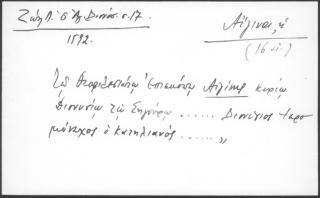 Ζώη Λ. ὁ Ἅγ. Διονύσ. σ. 17.
1592.
Αἴγινα, ἡ
(16 αἰ.)
Τῷ Θεοφιλεστάτῳ Ἐπισκόπῳ Αἰγίνης κυρίῳ
Διονυσίῳ τῷ Σηγούρῳ ...... Διονύσιος ἱερο
μόναχος ὁ Κατηλιανός ...... „